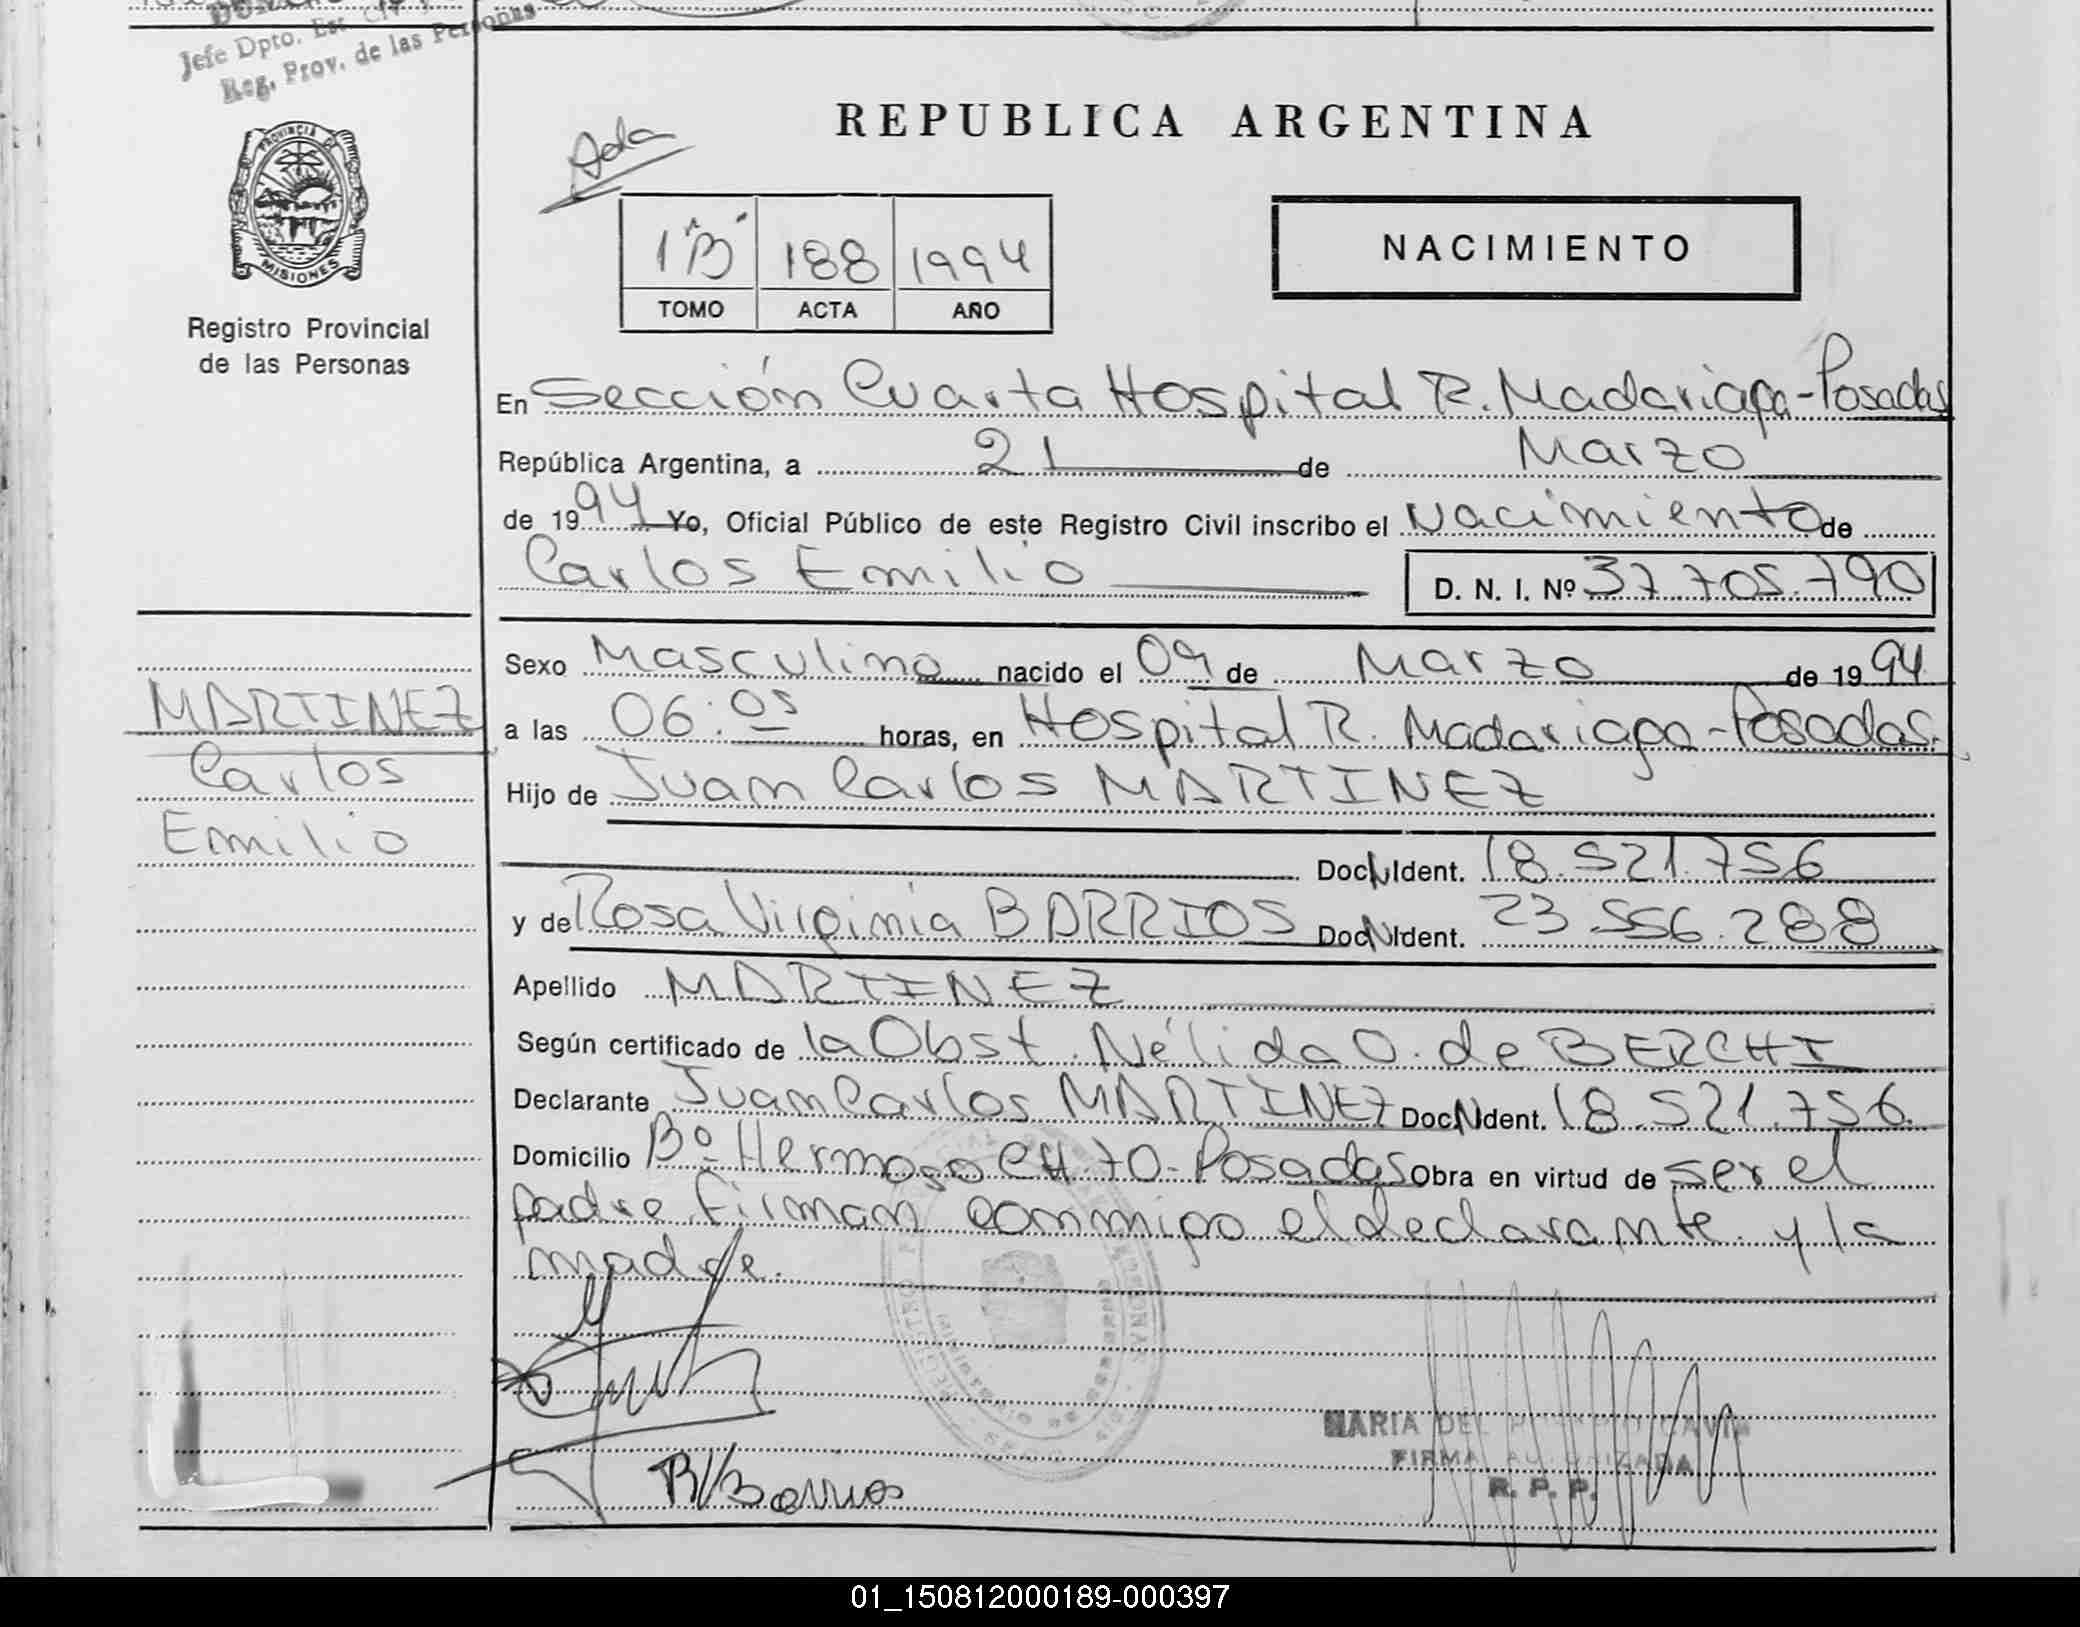 Jefe Dpto. Est. Civ. y
Reg. Prov. de las Personas
PROVINCIA DE
MISIONES
Registro Provincial
de las Personas
MARTINEZ
Carlos
Emilio
REPUBLICA ARGENTINA
1"B" 188 1994
TOMO ACTA AÑO
NACIMIENTO
En Sección Cuarta Hospital R. Madariaga-Posadas
República Argentina, a 21 de Marzo
de 1994 Yo, Oficial Público de este Registro Civil inscribo el Nacimiento de
Carlos Emilio D. N. I. Nº 37.705.790
Sexo Masculino nacido el 09 de Marzo de 1994
a las 06:05 horas, en Hospital R. Madariaga-Posadas.
Hijo de Juan Carlos MARTINEZ
Doc N Ident. 18.521.756
y de Rosa Virginia BARRIOS Doc N Ident. 23.556.288
Apellido MARTINEZ
Según certificado de la Obst. Nélida O. de BERCHI
Declarante Juan Carlos MARTINEZ Doc N Ident. 18.521.756.
Domicilio Bº Hermoso CH.70-Posadas Obra en virtud de ser el
padre firman conmigo el declarante y la
madre.
RVBarrios
MARIA DEL
FIRMA AUTORIZADA
R. P. P.
01_150812000189-000397